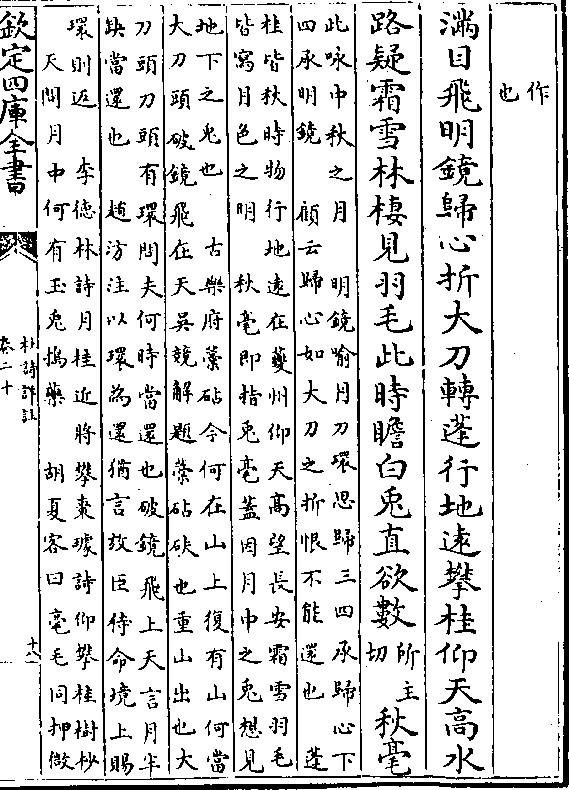 作
也
滿目飛明鏡歸心折大刀轉蓬行地逺攀桂仰天髙水
路疑霜雪林棲見羽毛此時瞻白兎直欲數所主切秋毫
此咏中秋之月　明鏡喻月刀環思歸三四承歸心下
四承明鏡　顧云歸心如大刀之折恨不能還也　蓬
桂皆秋時物行地逺在夔州仰天髙望長安霜雪羽毛
皆寫月色之明　秋毫即指兎毫蓋因月中之兎想見
地下之兎也　古樂府藁砧今何在山上復有山何當
大刀頭破鏡飛在天吳兢解題藁砧砆也重山出也大
刀頭刀頭有環問夫何時當還也破鏡飛上天言月半
缺當還也　趙汸注以環為還猶言放臣待命境上賜
環則返　李德林詩月桂近將攀棗璩詩仰攀桂樹杪
天問月中何有玉兎搗藥　胡夏客曰毫毛同押微
欽定四庫全書
杜詩詳註
卷二十
十八